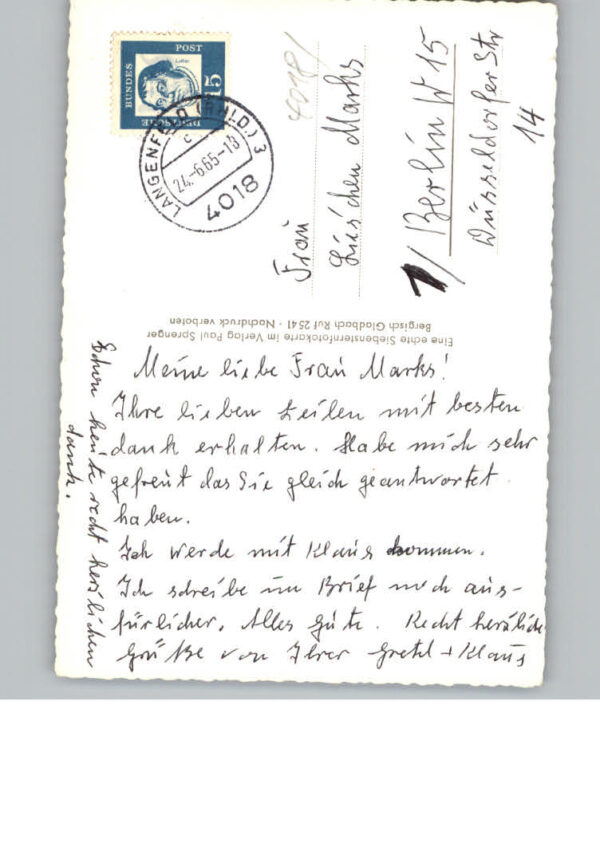 DEUTSCHE BUNDESPOST
Luther
15
LANGENFELD (RHLD.) 3
c
24.-6.65-18
4018
4018/
Frau
Lieschen Marks
1/ Berlin W 15
Düsseldorfer Str
14
Eine echte Siebensternfotokarte im Verlag Paul Sprenger
Bergisch Gladbach Ruf 2541 · Nachdruck verboten
Meine liebe Frau Marks!
Ihre lieben Zeilen mit besten
dank erhalten. Habe mich sehr
gefreut das Sie gleich geantwortet
haben.
Ich werde mit Klaus kommen.
Ich schreibe im Brief noch aus-
fürlicher. Alles Gute. Recht herzliche
Grüße von Ihrer Gretel + Klaus
Schon heute recht herzlichen
dank.